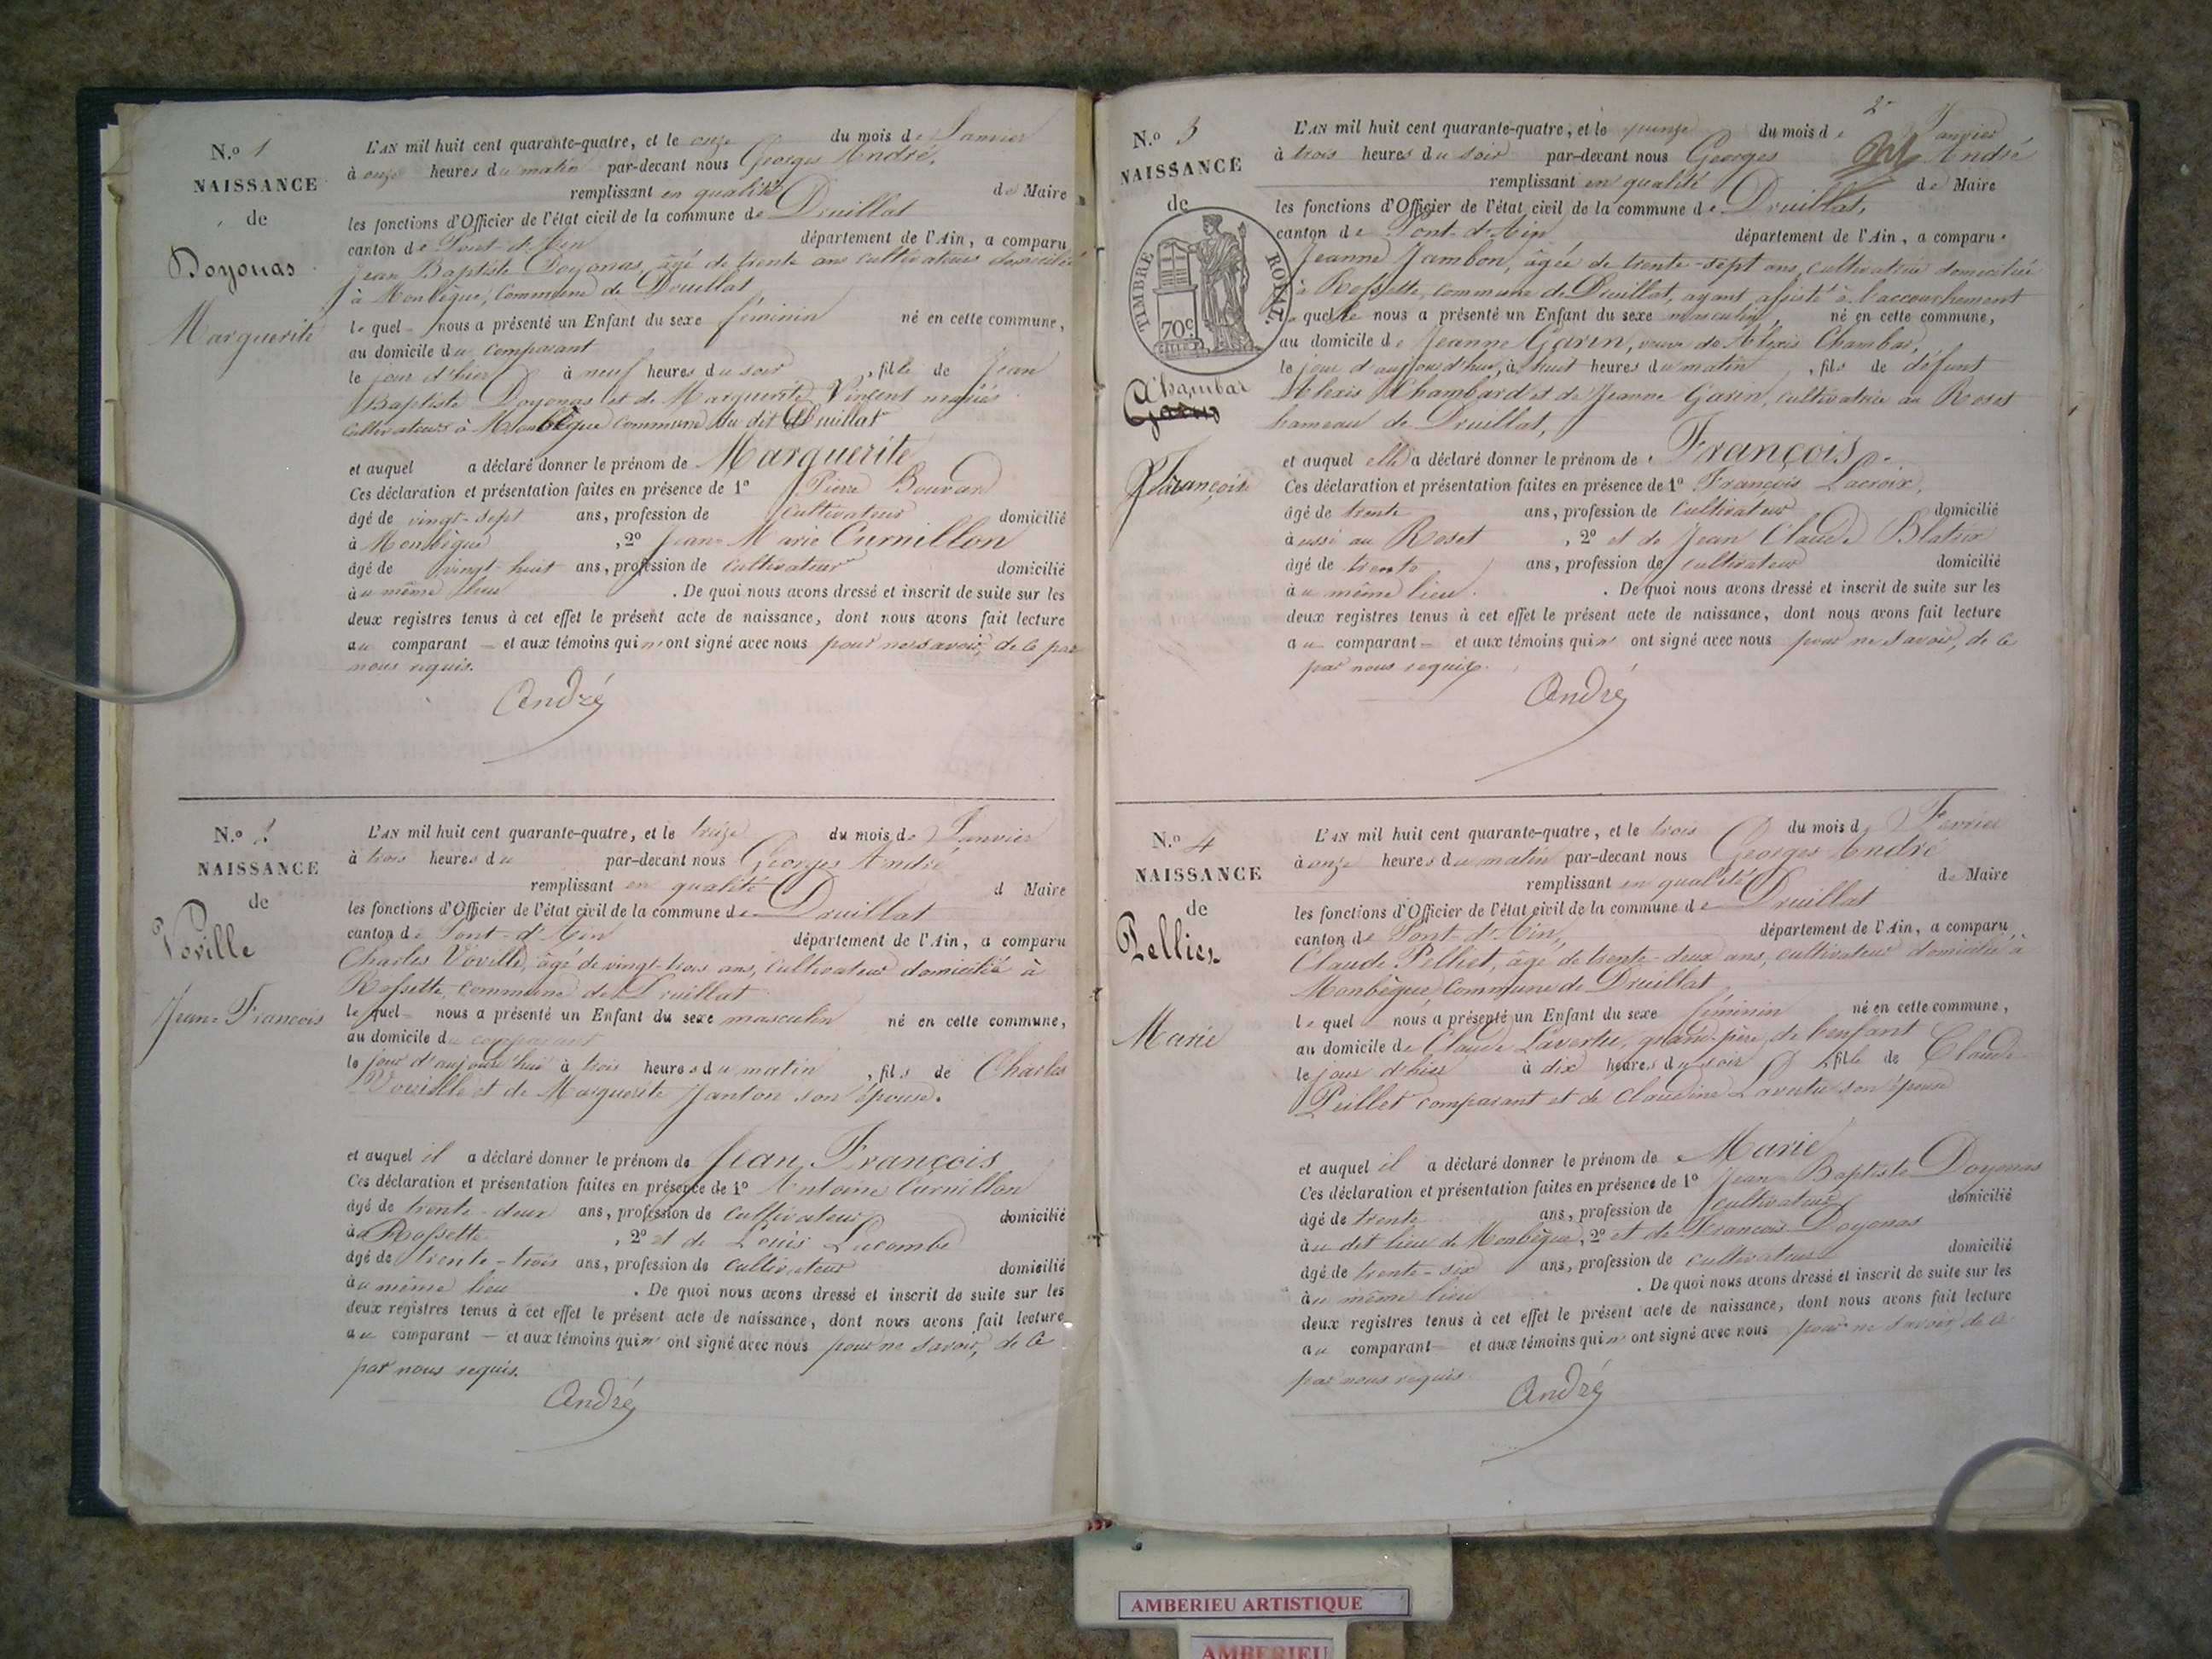 N.o 1
NAISSANCE
de
Doyonas
Marguerite
L'AN mil huit cent quarante-quatre, et le onze du mois de Janvier
à onze heures du matin par-devant nous Georges André,
remplissant en qualité de Maire
les fonctions d'Officier de l'état civil de la commune de Druillat
canton de Pont-d'Ain département de l'Ain, a comparu
Jean Baptiste Doyonas, âgé de trente ans cultivateur domicilié
à Monbègue, Commune de Druillat
lequel nous a présenté un Enfant du sexe féminin né en cette commune,
au domicile du comparant
le jour d'hier à neuf heures du soir, fille de Jean
Baptiste Doyonas et de Marguerite Vincent mariés
cultivateurs à Monbègue commune du dit Druillat
et auquel a déclaré donner le prénom de Marguerite
Ces déclaration et présentation faites en présence de 1o Pierre Bouvard
âgé de vingt-sept ans, profession de cultivateur domicilié
à Monbègue, 2o Jean-Marie Curnillon
âgé de vingt-huit ans, profession de cultivateur domicilié
au même lieu. De quoi nous avons dressé et inscrit de suite sur les
deux registres tenus à cet effet le présent acte de naissance, dont nous avons fait lecture
au comparant et aux témoins qui n'ont signé avec nous pour ne savoir, de ce par
nous requis.
André
N.o
NAISSANCE
de
Voville
Jean-François
L'AN mil huit cent quarante-quatre, et le treize du mois de Janvier
à trois heures du par-devant nous Georges André
remplissant en qualité d Maire
les fonctions d'Officier de l'état civil de la commune de Druillat
canton de Pont-d'Ain département de l'Ain, a comparu
Charles Voville, âgé de vingt-trois ans, cultivateur domicilié à
Rossette, commune de Druillat
lequel nous a présenté un Enfant du sexe masculin né en cette commune,
au domicile du comparant
le jour d'aujourd'hui à trois heures du matin, fils de Charles
Voville et de Marguerite Janton son épouse.
et auquel il a déclaré donner le prénom de Jean François
Ces déclaration et présentation faites en présence de 1o Antoine Curnillon
âgé de trente-deux ans, profession de cultivateur domicilié
à Rossette, 2o et de Louis Lacombe
âgé de trente-trois ans, profession de cultivateur domicilié
au même lieu. De quoi nous avons dressé et inscrit de suite sur les
deux registres tenus à cet effet le présent acte de naissance, dont nous avons fait lecture
au comparant et aux témoins qui n'ont signé avec nous pour ne savoir, de ce
par nous requis.
André
2
N.o 3
NAISSANCE
de
TIMBRE ROYAL.
70c
Chambar
François
L'AN mil huit cent quarante-quatre, et le quinze du mois de Janvier
à trois heures du soir par-devant nous Georges André
remplissant en qualité de Maire
les fonctions d'Officier de l'état civil de la commune de Druillat,
canton de Pont-d'Ain département de l'Ain, a comparu
Jeanne Jambon, âgée de trente-sept ans, cultivatrice domiciliée
à Rossette, commune de Druillat, ayant assisté à l'accouchement
laquelle nous a présenté un Enfant du sexe masculin, né en cette commune,
au domicile de Jeanne Garin, veuve de Alexis Chambar,
le jour d'aujourd'hui, à huit heures du matin, fils de défunt
Alexis Chambard et de Jeanne Garin, cultivatrice au Roset
hameau de Druillat,
et auquel elle a déclaré donner le prénom de François.
Ces déclaration et présentation faites en présence de 1o François Lacroix,
âgé de trente ans, profession de cultivateur domicilié
aussi au Roset, 2o et de Jean Claude Blatrix
âgé de trente ans, profession de cultivateur domicilié
au même lieu. De quoi nous avons dressé et inscrit de suite sur les
deux registres tenus à cet effet le présent acte de naissance, dont nous avons fait lecture
au comparant et aux témoins qui n'ont signé avec nous pour ne savoir, de ce
par nous requis.
André
N.o 4
NAISSANCE
de
Pelliet
Marie
L'AN mil huit cent quarante-quatre, et le trois du mois de Fevrier
à onze heures du matin par-devant nous Georges André
remplissant en qualité de Maire
les fonctions d'Officier de l'état civil de la commune de Druillat
canton de Pont-d'Ain, département de l'Ain, a comparu
Claude Pelliet, âgé de trente-deux ans, cultivateur domicilié à
Monbègue Commune de Druillat
lequel nous a présenté un Enfant du sexe féminin né en cette commune,
au domicile de Claude Lavertu, grand-père de l'enfant
le jour d'hier à dix heures du soir, fille de Claude
Peillet comparant et de Claudine Lavertu son épouse
et auquel il a déclaré donner le prénom de Marie
Ces déclaration et présentation faites en présence de 1o Jean-Baptiste Doyonas
âgé de trente ans, profession de cultivateur domicilié
au dit lieu de Monbègue, 2o et de François Doyonas
âgé de trente-six ans, profession de cultivateur domicilié
au même lieu. De quoi nous avons dressé et inscrit de suite sur les
deux registres tenus à cet effet le présent acte de naissance, dont nous avons fait lecture
au comparant et aux témoins qui n'ont signé avec nous pour ne savoir, de ce
par nous requis.
André
AMBERIEU ARTISTIQUE
AMBERIEU